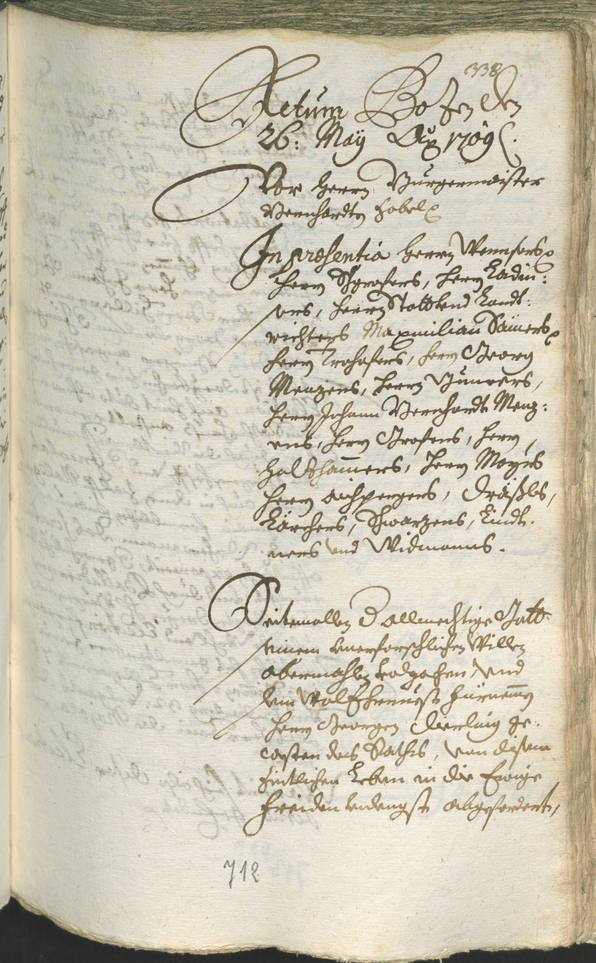 338
Actum Bozen den
26: May Ao 1709
Vor Herrn Burgermaister
Bernhardtn Zobel
In præsentia Herrn Wennsers
Herrn Herrn Ladin:
sers, Herrn Stattund Landt:
richters Maximilian Sauers
Herrn Trohofers, Herrn Georg
Menzens, Herrn
Herrn Johann Bernhardt Menz:
ens, Herrn Grafens, Herrn
Holzhamers, Herrn Mayrs
Herrn aichpergers,
Kärchers, Schwarzens, Lindt:
ners und Widmanns.
Seitemallen d allmechtige Gott
seinem unerforschlichen Willen
abermahlen volzochen, und
den Wolfürnemen
Herrn Georgen ge:
westen des Rathß, von disem
zeitlichen Leben in die Ewige
Freiden unlengst abgefordert,
712